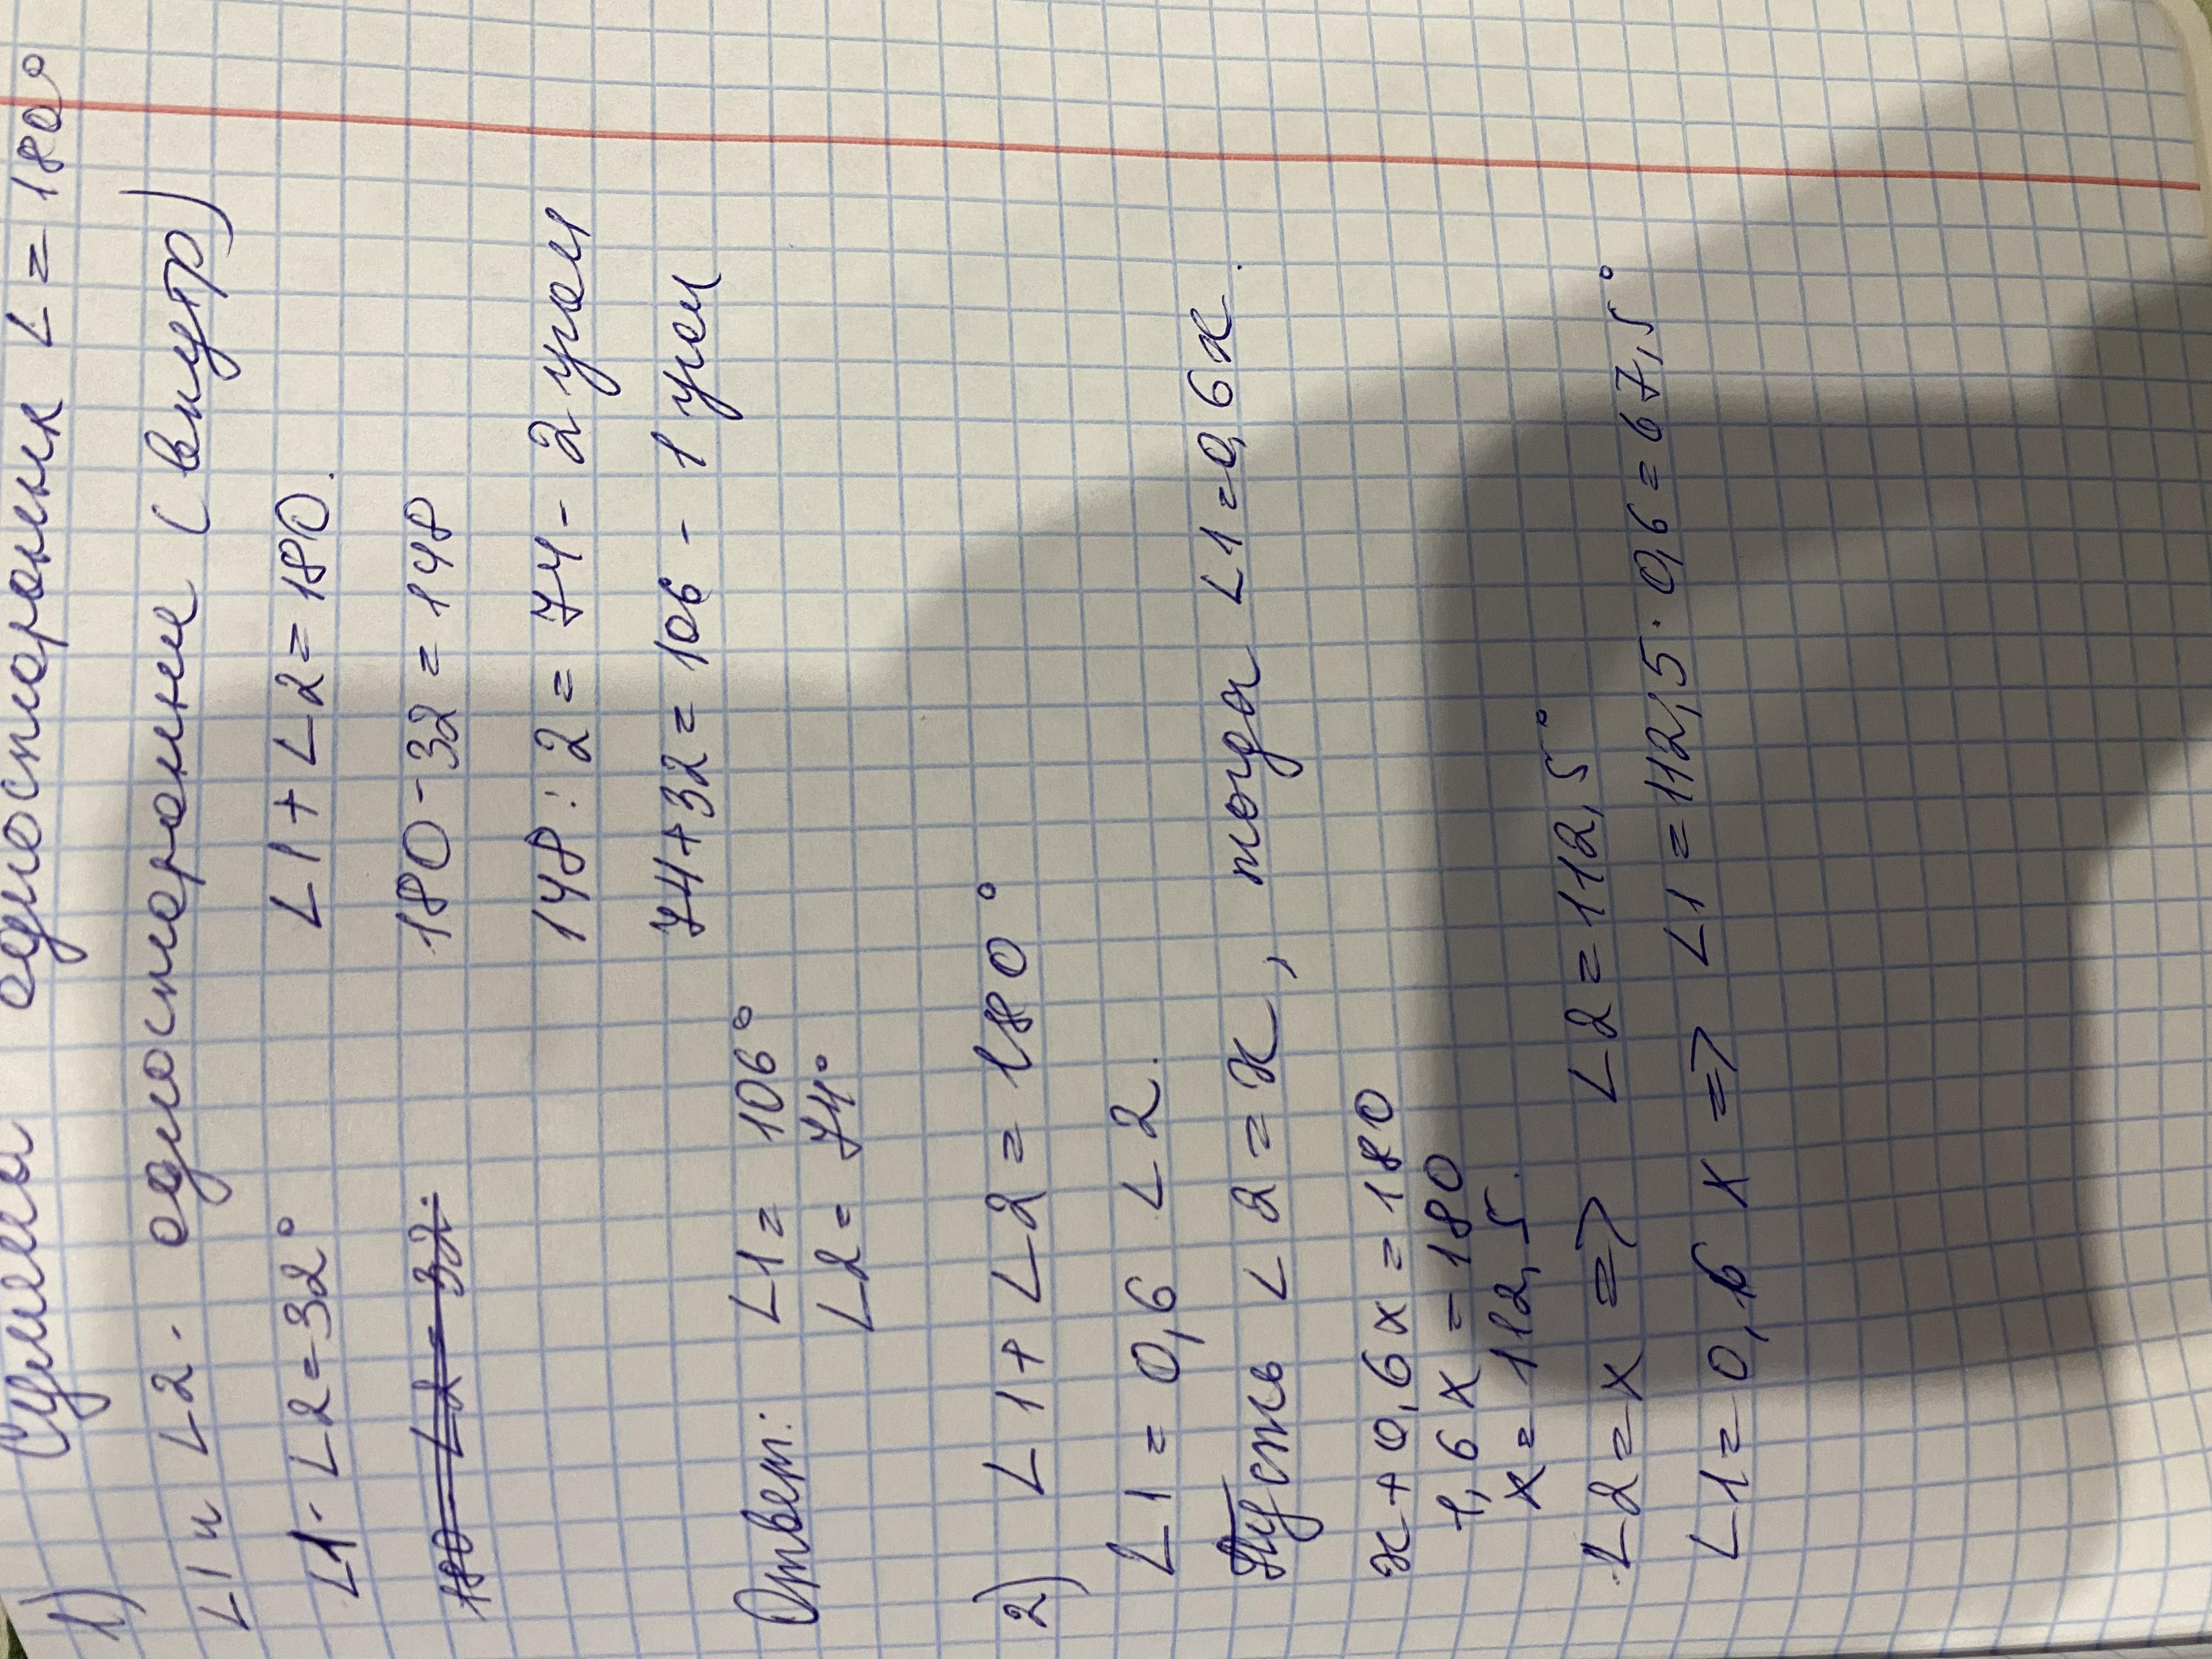 1) Сумма односторонних ∠ = 180°
∠1 и ∠2 - односторонние (внутр)
∠1 - ∠2 = 32° ∠1 + ∠2 = 180.
180 - ∠2 = 32. 180 - 32 = 148
148 : 2 = 74 - 2 угол
74 + 32 = 106 - 1 угол
Ответ: ∠1 = 106°
∠2 = 74°
2) ∠1 + ∠2 = 180°
∠1 = 0,6 ∠2.
Пусть ∠2 = x, тогда ∠1 = 0,6x.
x + 0,6x = 180
1,6x = 180
x = 112,5.
∠2 = x => ∠2 = 112,5°
∠1 = 0,6x => ∠1 = 112,5 · 0,6 = 67,5°